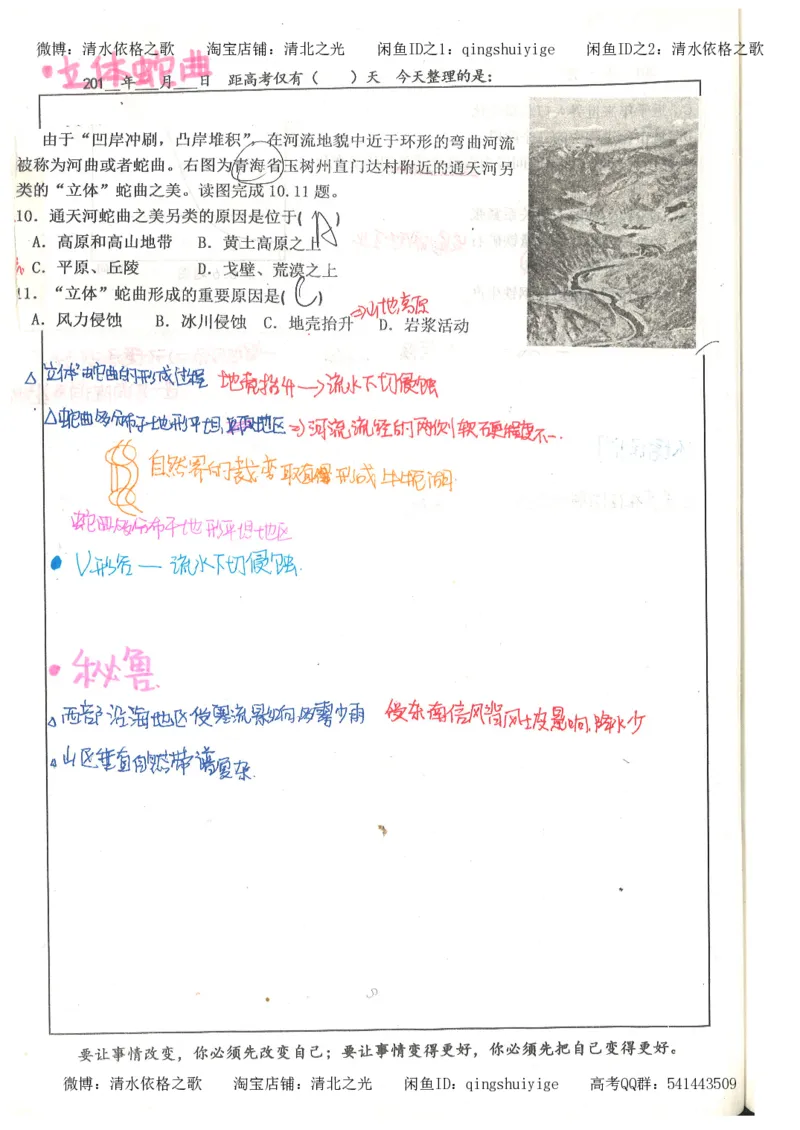 微博：清水依格之歌 淘宝店铺：清北之光 闲鱼ID之1：qingshuiyige 闲鱼ID之2：清水依格之歌
·立体蛇曲
201__年___月___日 距高考仅有（ ）天 今天整理的是：
由于“凹岸冲刷，凸岸堆积”，在河流地貌中近于环形的弯曲河流
被称为河曲或者蛇曲。右图为青海省玉树州直门达村附近的通天河另
类的“立体”蛇曲之美。读图完成10.11题。
10．通天河蛇曲之美另类的原因是位于( A )
A．高原和高山地带 B．黄土高原之上
C．平原、丘陵 D．戈壁、荒漠之上
11．“立体”蛇曲形成的重要原因是( C )
⇒山地高原
A．风力侵蚀 B．冰川侵蚀 C．地壳抬升 D．岩浆活动
△立体蛇曲的形成过程 地壳抬升→流水下切侵蚀
△蛇曲多分布于地形平坦地区⇒河流流经的两侧软硬程度不一.
自然界的裁弯取直 形成牛轭湖
蛇曲多分布于地形平坦地区
●V形谷—流水下切侵蚀.
·秘鲁
△西部沿海地区受寒流影响多雾少雨 受东南信风背风坡影响,降水少
△山区垂直自然带谱复杂.
要让事情改变，你必须先改变自己；要让事情变得更好，你必须先把自己变得更好。
微博：清水依格之歌 淘宝店铺：清北之光 闲鱼ID：qingshuiyige 高考QQ群：541443509